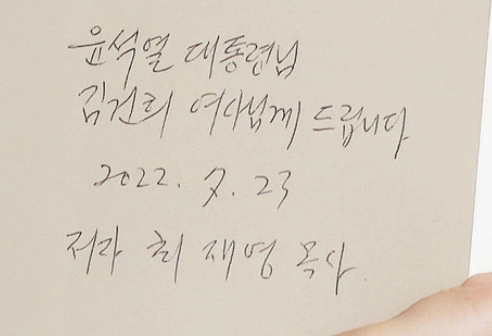 윤석열 대통령님
김건희 여사님께 드립니다
2022. 7. 23
저자 최재영 목사